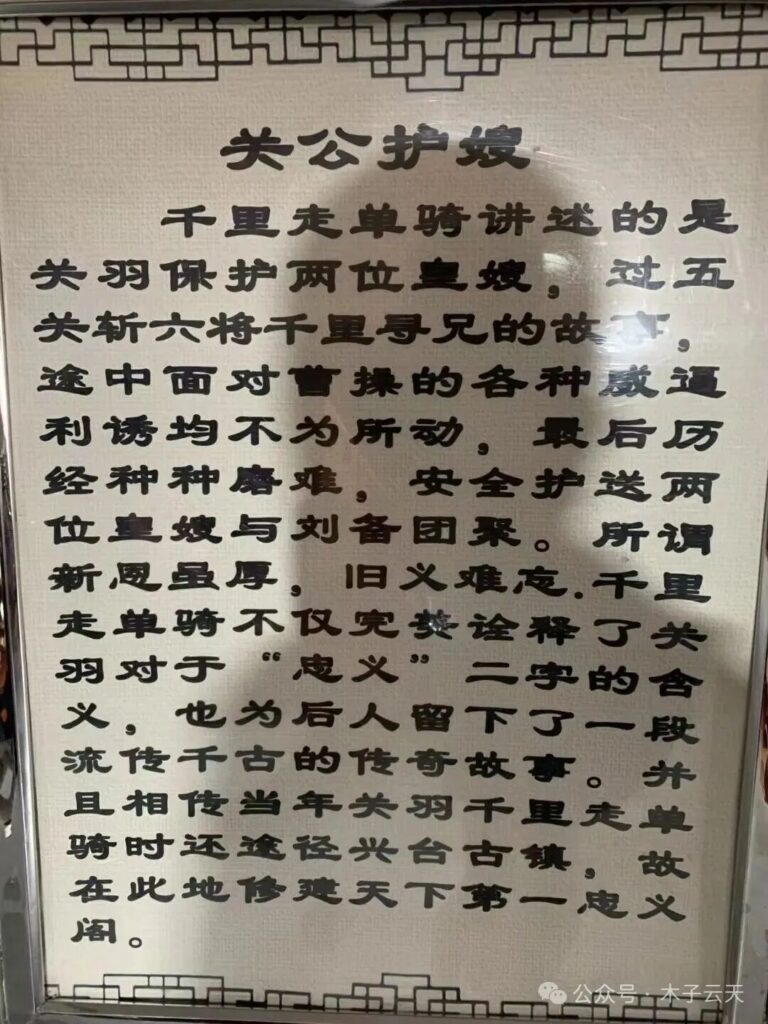 关公护嫂
千里走单骑讲述的是
关羽保护两位皇嫂，过五
关斩六将千里寻兄的故事，
途中面对曹操的各种威逼
利诱均不为所动，最后历
经种种磨难，安全护送两
位皇嫂与刘备团聚。所谓
新恩虽厚，旧义难忘.千里
走单骑不仅完美诠释了关
羽对于“忠义”二字的含
义，也为后人留下了一段
流传千古的传奇故事。并
且相传当年关羽千里走单
骑时还途径兴台古镇，故
在此地修建天下第一忠义
阁。
公众号·木子云天